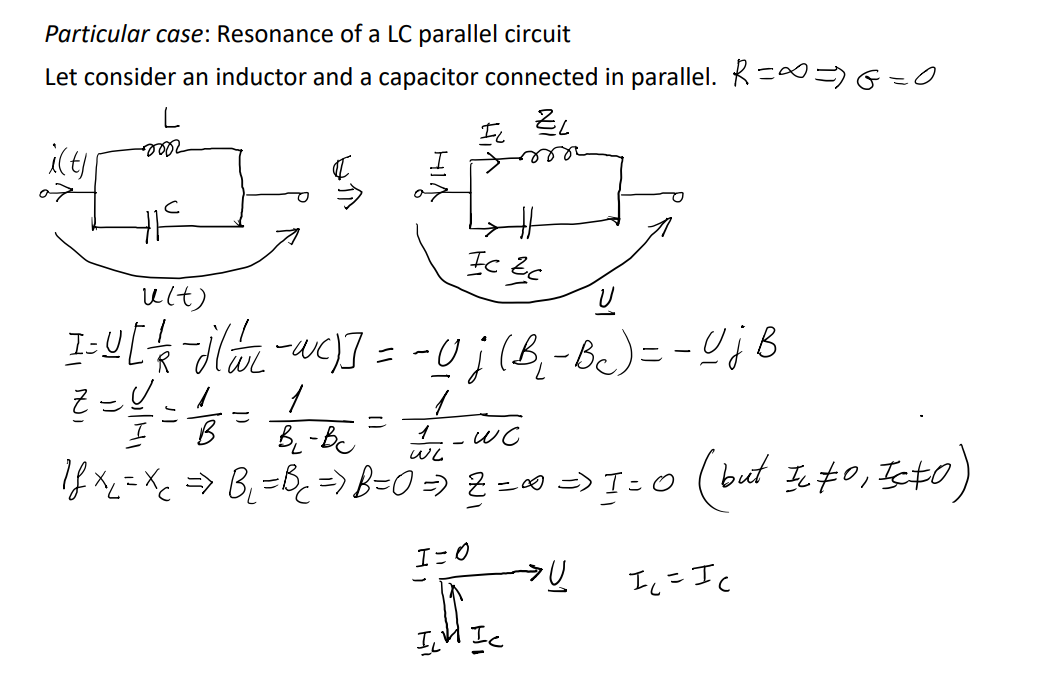 Particular case: Resonance of a LC parallel circuit
Let consider an inductor and a capacitor connected in parallel. R = ∞ ⇒ G = 0
L
i(t)
C
u(t)
ℂ
⇒
I
I_L Z_L
I_C Z_C
U
I = U [1/R - j(1/ωL - ωC)] = - U j (B_L - B_C) = - U j B
Z = U/I = 1/B = 1/(B_L - B_C) = 1/(1/ωL - ωC)
If X_L = X_C ⇒ B_L = B_C ⇒ B = 0 ⇒ Z = ∞ ⇒ I = 0 (but I_L ≠ 0, I_C ≠ 0)
I = 0
U I_L = I_C
I_L I_C